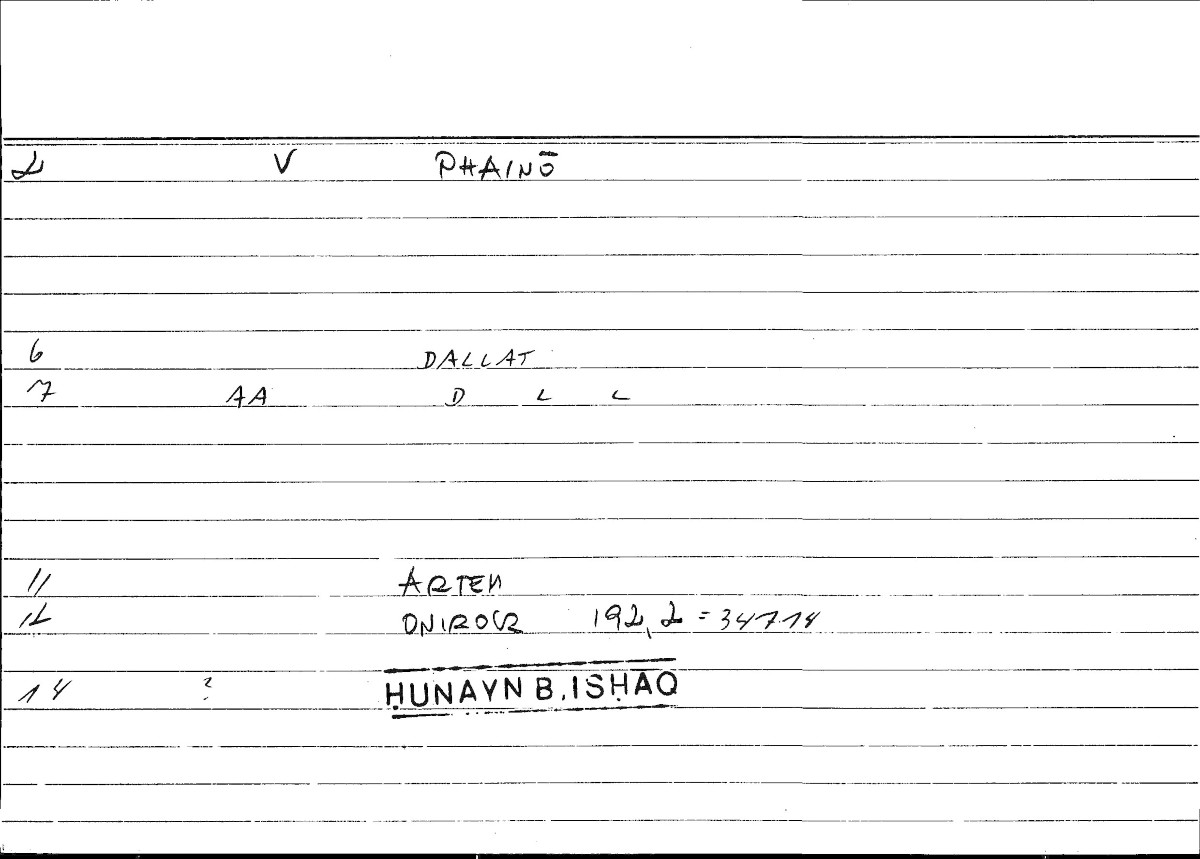 2 V PHAINŌ
6 DALLAT
7 AA D L L
11 ARTEM
12 ONIROCR 192,2 = 347.14
14 ? ḤUNAYN B. ISḤĀQ